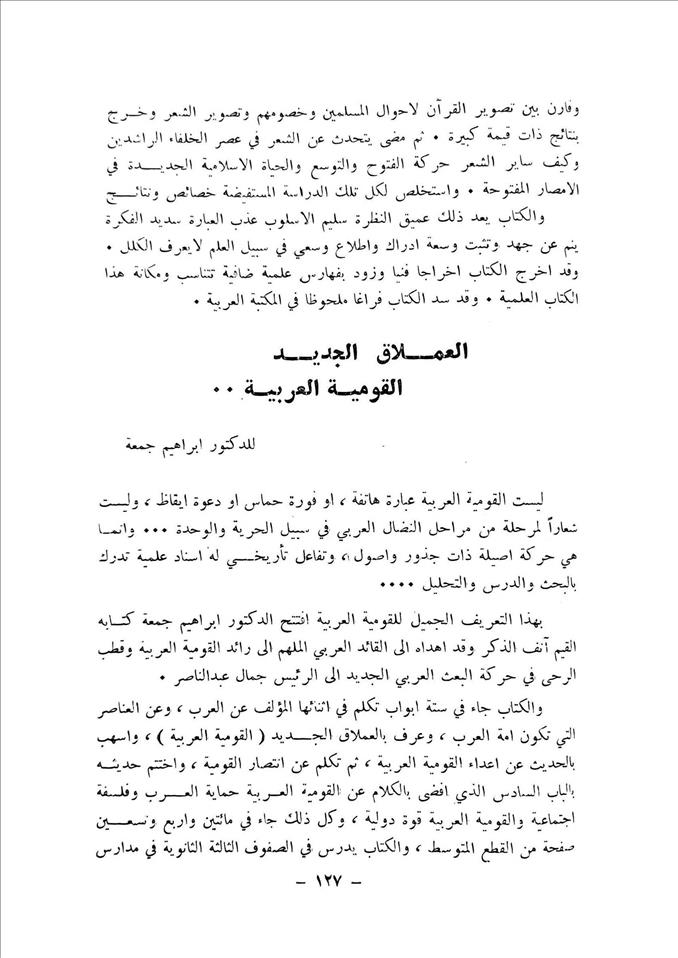 وقارن بين تصوير القرآن لاحوال المسلمين وخصومهم وتصوير الشعر وخرج
بنتائج ذات قيمة كبيرة ٠ ثم مضى يتحدث عن الشعر في عصر الخلفاء الراشدين
وكيف ساير الشعر حركة الفتوح والتوسع والحياة الاسلامية الجديدة في
الامصار المفتوحة ٠ واستخلص لكل تلك الدراسة المستفيضة خصائص ونتائج
والكتاب يعد ذلك عميق النظرة سليم الاسلوب عذب العبارة سديد الفكرة
ينم عن جهد وتثبت وسعة ادراك واطلاع وسعي في سبيل العلم لايعرف الكلل ٠
وقد اخرج الكتاب اخراجا فنيا وزود بفهارس علمية ضافية تتناسب ومكانة هذا
الكتاب العلمية ٠ وقد سد الكتاب فراغا ملحوظا في المكتبة العربية ٠
العملاق الجديد
القومية العربية ٠٠
للدكتور ابراهيم جمعة
ليست القومية العربية عبارة هاتفة ، او فورة حماس او دعوة ايقاظ ، وليست
شعاراً لمرحلة من مراحل النضال العربي في سبيل الحرية والوحدة ٠٠٠ وانما
هي حركة اصيلة ذات جذور واصول ، وتفاعل تأريخي له اسناد علمية تدرك
بالبحث والدرس والتحليل ٠٠٠٠
بهذا التعريف الجميل للقومية العربية افتتح الدكتور ابراهيم جمعة كتابه
القيم آنف الذكر وقد اهداه الى القائد العربي الملهم الى رائد القومية العربية وقطب
الرحى في حركة البعث العربي الجديد الى الرئيس جمال عبدالناصر ٠
والكتاب جاء في ستة ابواب تكلم في اثنائها المؤلف عن العرب ، وعن العناصر
التي تكون امة العرب ، وعرف بالعملاق الجديد ( القومية العربية ) ، واسهب
بالحديث عن اعداء القومية العربية ، ثم تكلم عن انتصار القومية ، واختتم حديثه
بالباب السادس الذي افضى بالكلام عن القومية العربية حماية العرب وفلسفة
اجتماعية والقومية العربية قوة دولية ، وكل ذلك جاء في مائتين واربع وتسعين
صفحة من القطع المتوسط ، والكتاب يدرس في الصفوف الثالثة الثانوية في مدارس
– ١٢٧ –